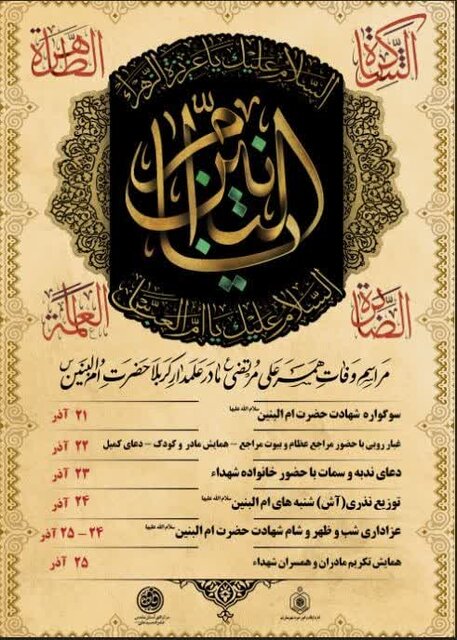 الشاکرة
الطاهرة
السلام علیك یا عزیزة الزهراء
یا ام البنین
السلام علیك یا ام العباس
الصابرة
العالمة
مراسم وفات همسر علی مرتضی ع مادر علمدار کربلا حضرت ام البنین س
سوگواره شهادت حضرت ام البنین سلام الله علیها ۲۱ آذر
غبار روبی با حضور مراجع عظام و بیوت مراجع – همایش مادر و کودک – دعای کمیل ۲۲ آذر
دعای ندبه و سمات با حضور خانواده شهداء ۲۳ آذر
توزیع نذری (آش) شنبه های ام البنین سلام الله علیها ۲۴ آذر
عزاداری شب و ظهر و شام شهادت حضرت ام البنین سلام الله علیها ۲۴ – ۲۵ آذر
همایش تکریم مادران و همسران شهداء ۲۵ آذر